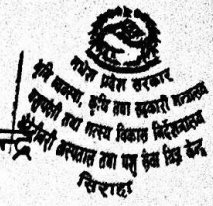 मधेश प्रदेश सरकार
भूमि व्यवस्था, कृषि तथा सहकारी मन्त्रालय
पशुपंछी तथा मत्स्य विकास निर्देशनालय
भेटेरिनरी अस्पताल तथा पशु सेवा विज्ञ केन्द्र
सिराहा